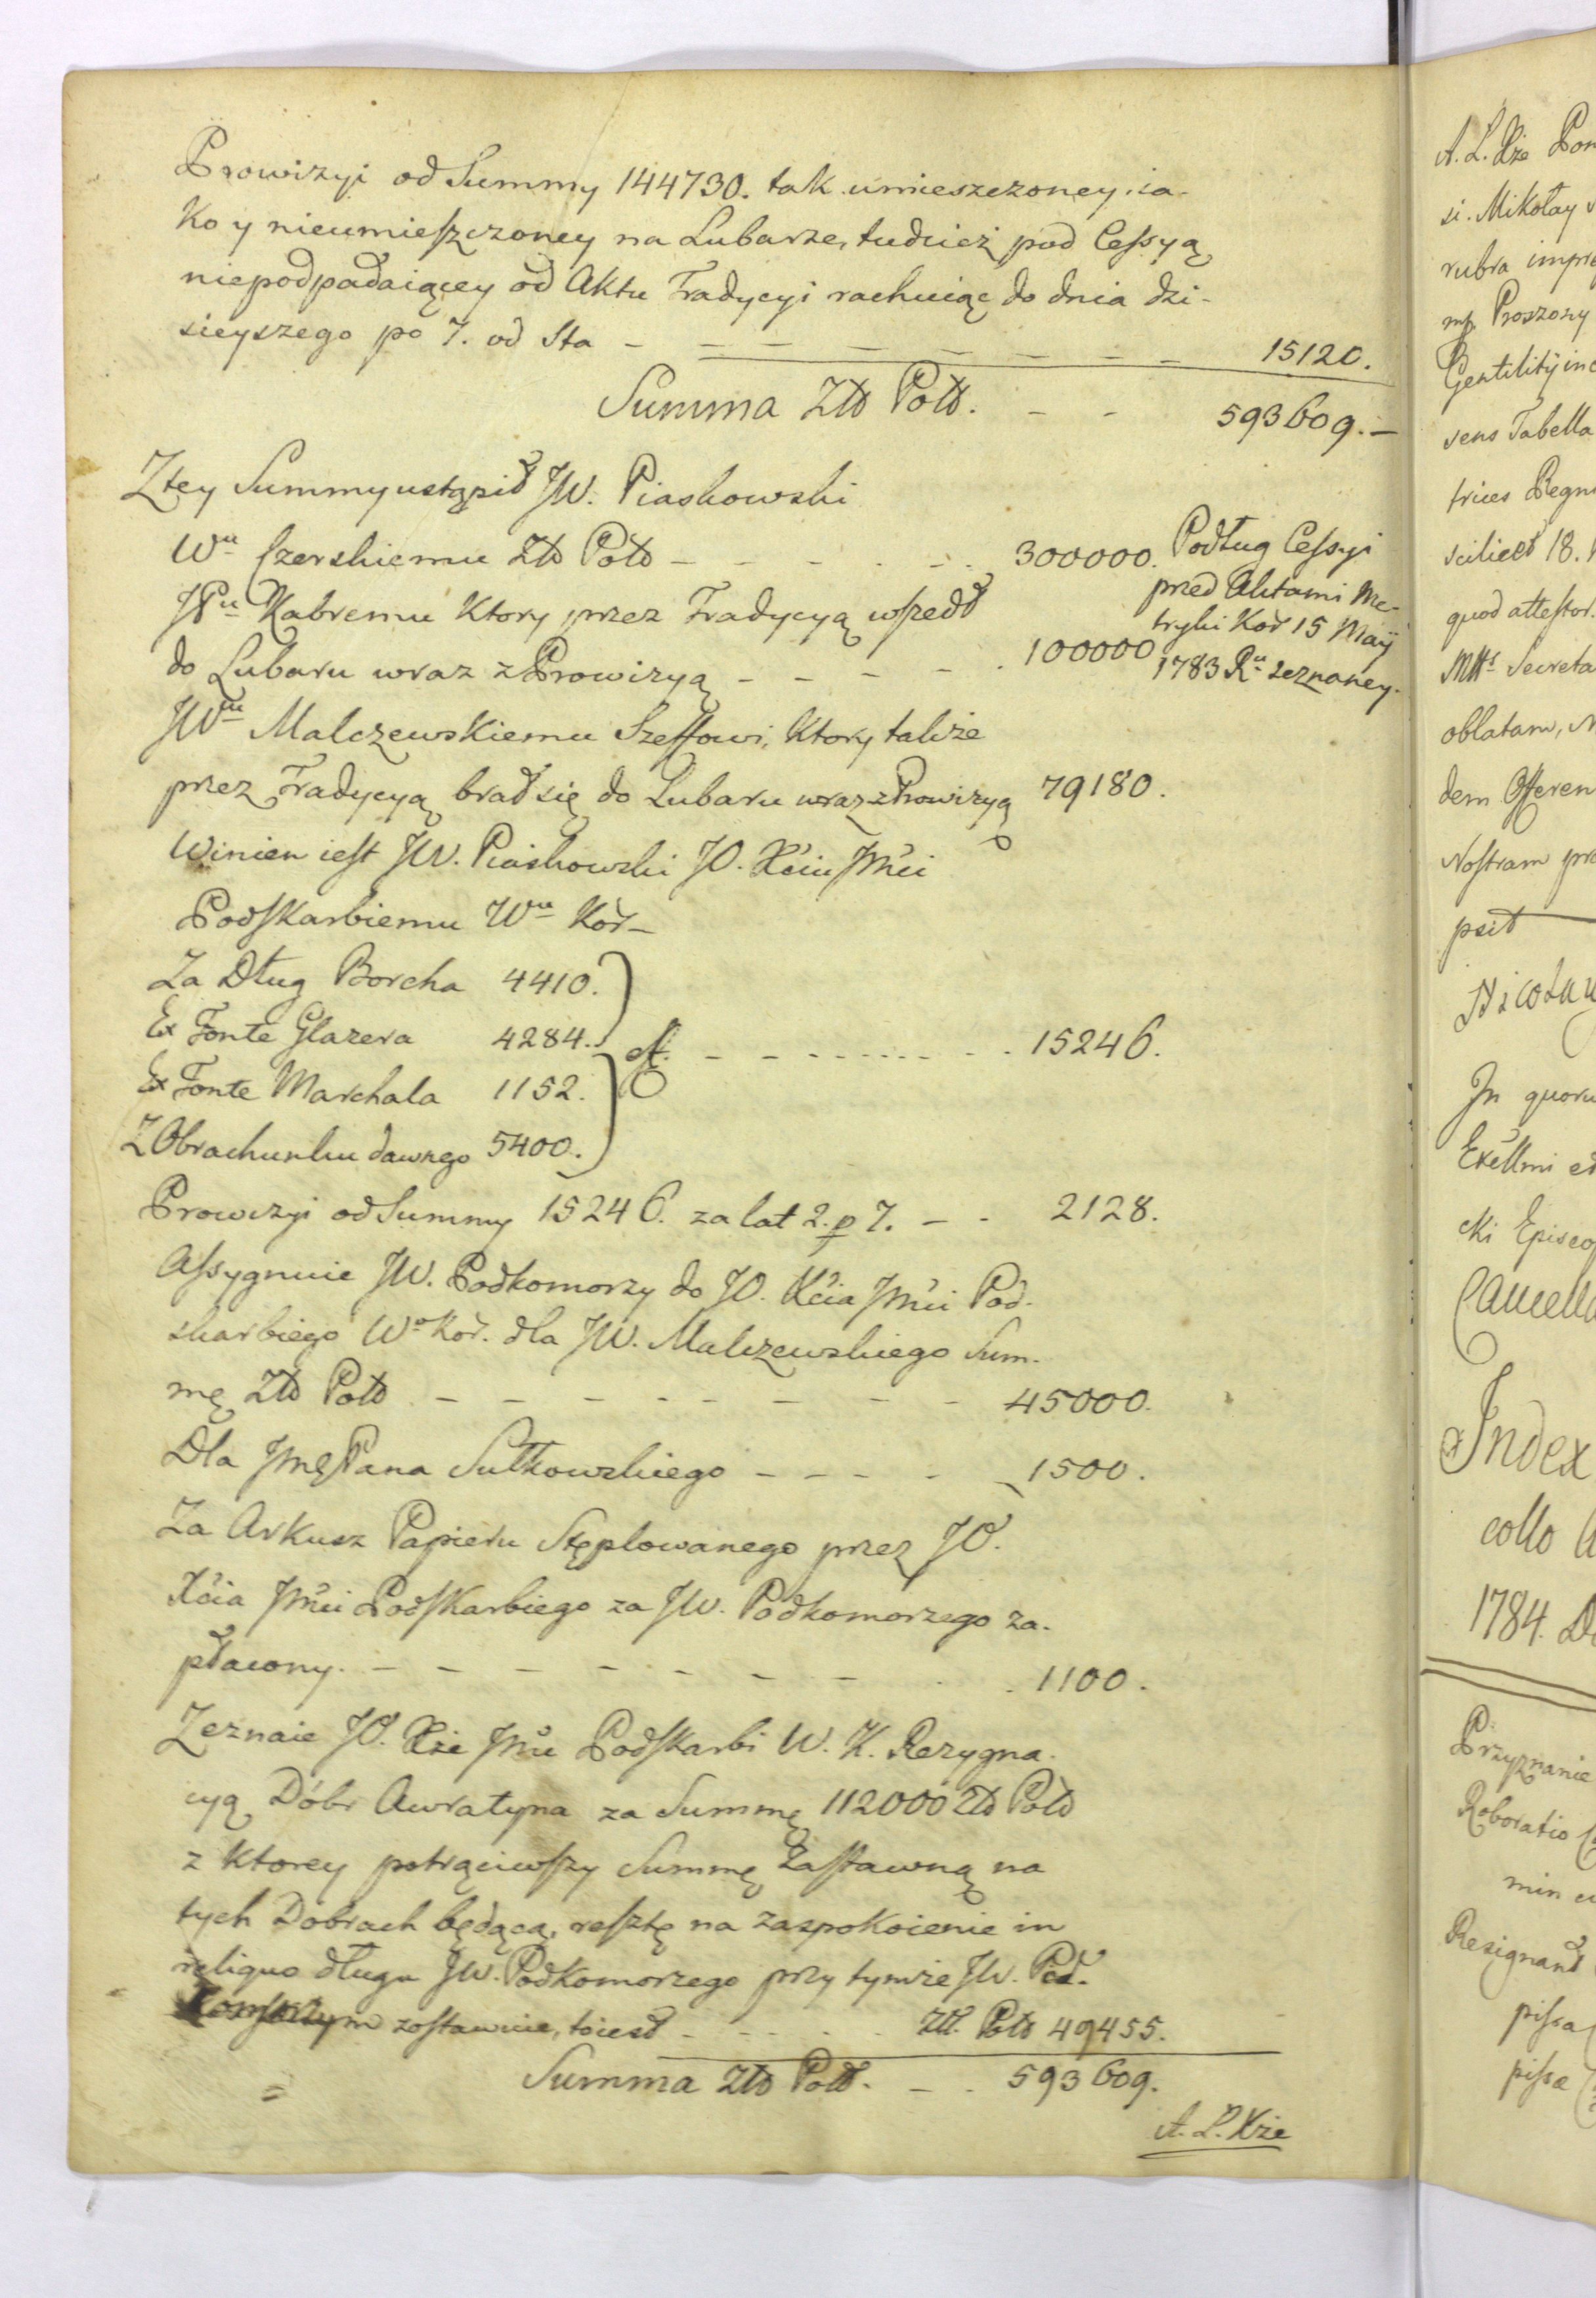 Prowizyi od Summy 144730. tak umieszczoney, ia-
ko y nieumieszczoney na Lubarze, tudzież pod Cessyą
niepodpadaiącey od Aktu Tradycyi rachuiąc do dnia dzi-
sieyszego po 7. od Sta - - - - - - - - 15120.
Summa Złł Poll. - - 593609.-
Z tey Summy ustąpił JW. Piaskowski
Wu Czerskiemu Złł Poll - - - - - 300000.
JPu Kabremu ktory przez Tradycyą wszedł
do Lubaru wraz z Prowizyą - - - - . 100000
Podług Cessyi
pred Aktami Me-
tryki Kor 15 Maij
1783 Ru zeznaney.
JWu Malczewskiemu Szeffowi, ktory także
przez Tradycyą brał się do Lubaru wraz z Prowizyą 79180.
Winien iest JW. Piaskowski JO. Xciu Jmci
Podskarbiemu Wu Kor-
Za Dług Borcha 4410.
Ex Fonte Glazera 4284.
Ex Fonte Marchala 1152.
Z Obrachunku dawnego 5400.
- - - - - - - - 15246.
Prowizyi od Summy 15246. za lat 2. p 7. - - 2128.
Assygnuie JW. Podkomorzy do JO. Xcia Jmci Pod-
skarbiego Wo Kor. dla JW. Malczewskiego Sum-
mę Złł Poll - - - - - - - - 45000.
Dla Jmę Pana Sułkowskiego - - - - - 1500.
Za Arkusz Papieru Stęplowanego przez JO.
Xcia Jmci Podskarbiego za JW. Podkomorzego za-
płacony. - - - - - - - . 1100.
Zeznaie JO. Xże Jmć Podskarbi W. K. Rezygna-
cyą Dóbr Awratyna za Summę 112000 Złł Poll
z ktorey potrąciwszy Summę Zastawną na
tych Dobrach będącą, resztę na zaspokoienie in
reliquo długu JW. Podkomorzego przy tymże JW. Pod-
komorzym zostawuie, to iest - - - - - Złł. Poll 49455.
Summa Złł Poll. - - 593609.
A. P. Xże
A. P. Xże Pon
si. Mikołay
rubra impre
mp. Proszony
Gentilitij in
sens Tabella
trices Regn
scilicet 18.
quod attestor.
Mtts Secreta
oblatam,
dem Offeren
Nostram pre
psit
Nicolay
In quoru
Excellmi
cki Episco
Cancella
Index
collo A
1784. D
Przyznanie
Roboratio
min
Resignant
pissa
pissa